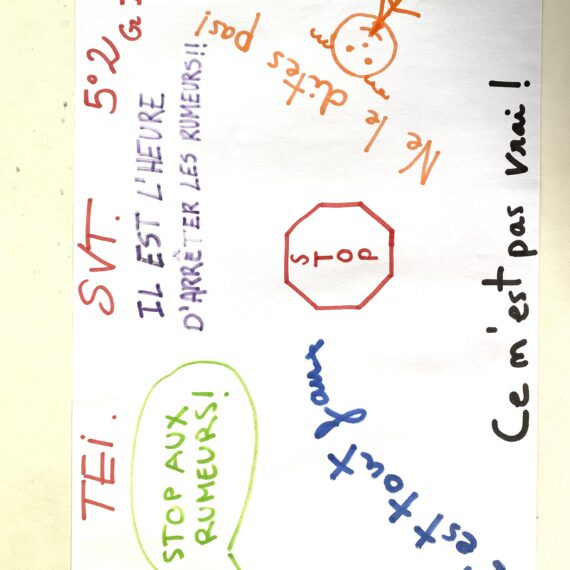 TEi. SVT. 5°2
IL EST L'HEURE
D'ARRÊTER LES RUMEURS!!
STOP AUX
RUMEURS!
STOP
Ne le dites pas!
est tout faux
Ce m'est pas vrai!